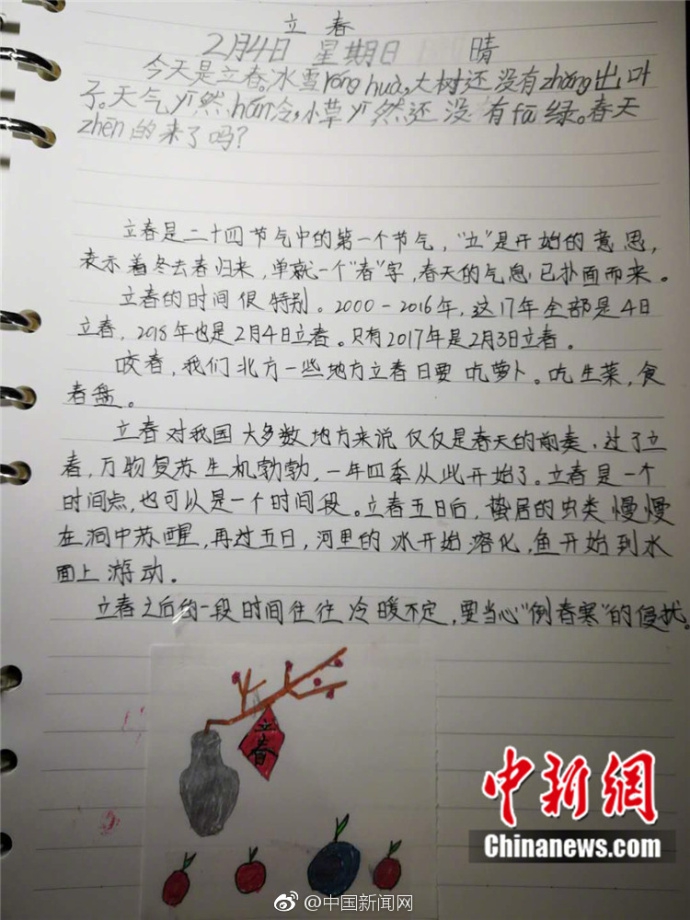 立春
2月4日 星期日 晴
今天是立春。冰雪róng huà。大树还没有zhǎng出叶
子。天气yī然hán冷,小草yī然还没有fā绿。春天
zhēn的来了吗?
立春是二十四节气中的第一个节气,“立”是开始的意思,
表示着冬去春归来,单就一个“春”字,春天的气息已扑面而来。
立春的时间很特别。2000-2016年,这17年全部是4日
立春,2018年也是2月4日立春。只有2017年是2月3日立春。
咬春,我们北方一些地方立春日要吃萝卜。吃生菜,食
春盘。
立春对我国大多数地方来说仅仅是春天的前奏,过了立
春,万物复苏生机勃勃,一年四季从此开始了。立春是一个
时间点,也可以是一个时间段。立春五日后,蛰居的虫类慢慢
在洞中苏醒,再过五日,河里的冰开始溶化,鱼开始到水
面上游动。
立春之后的一段时间往往冷暖不定,要当心“倒春寒”的侵扰。
立春
中新网
Chinanews.com
@中国新闻网